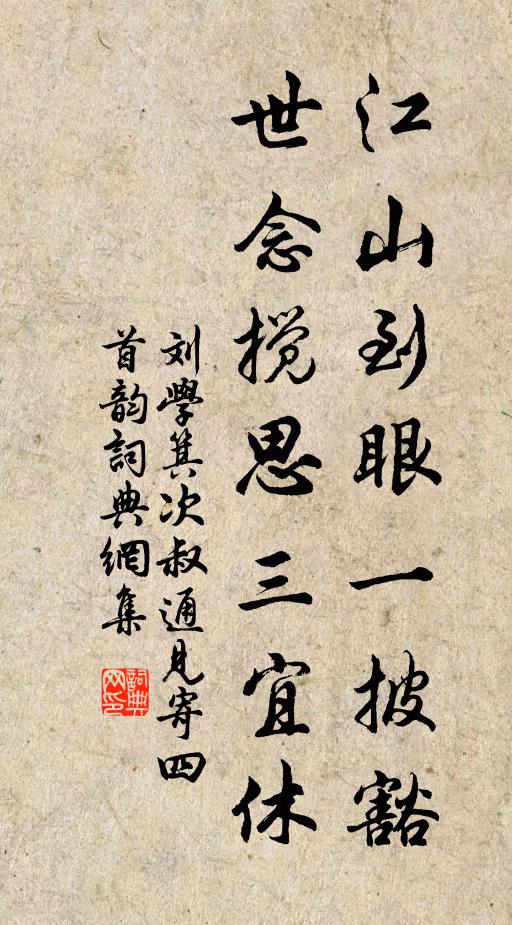 江山到眼一披豁
世念搅思三宜休
刘學箕次叔通見寄四
首韵詞典網集
詞典
网印